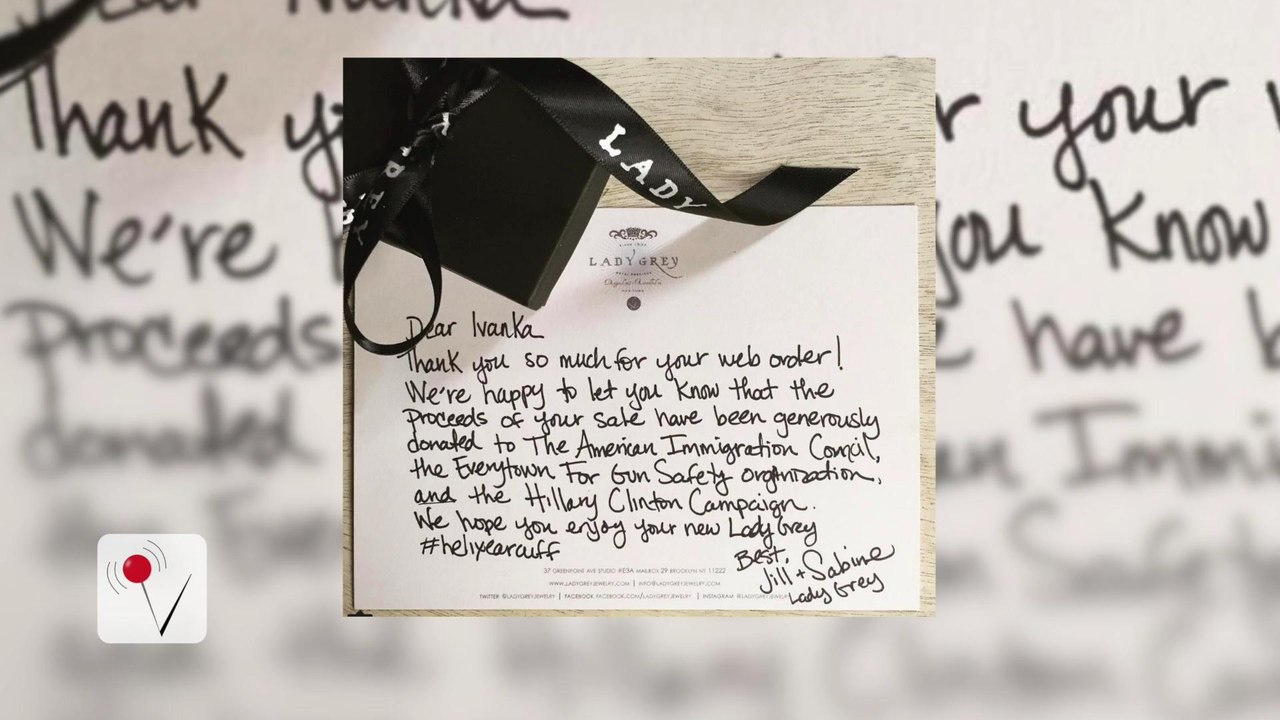 LADY
LADY GREY
Dear Ivanka
Thank you so much for your web order!
We're happy to let you know that the
proceeds of your sale have been generously
donated to The American Immigration Council,
the Everytown For Gun Safety organization,
and the Hillary Clinton Campaign.
We hope you enjoy your new Lady Grey
#helixearcuff
Best,
Jill + Sabine
Lady Grey
37 GREENPOINT AVE STUDIO #E3A MAILBOX 29 BROOKLYN NY 11222
WWW.LADYGREYJEWELRY.COM | INFO@LADYGREYJEWELRY.COM
TWITTER @LADYGREYJEWELRY | FACEBOOK FACEBOOK.COM/LADYGREYJEWELRY | INSTAGRAM @LADYGREYJEWELRY